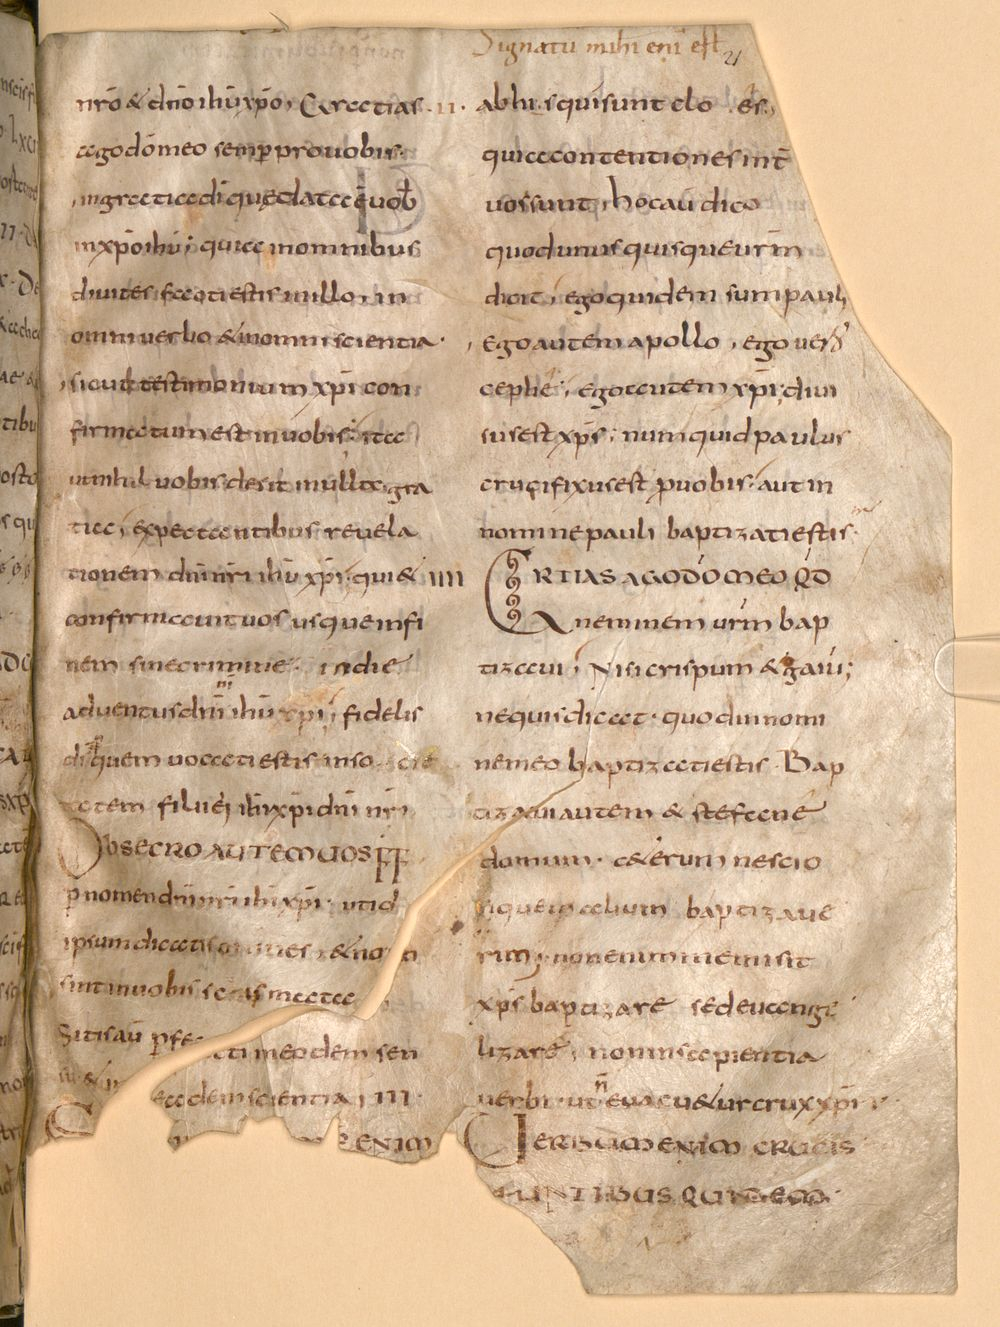 Signatu mihi eni est
21
nr̄o & dn̄o ihū xp̄o, Gratias · II ·
ago dōmeo semp̄ pro uobis·
in gratia dī quę data ē uob
in xp̄o ihū; quia in omnibus
diuites facti estis in illo, in
omni uerbo & in omni scientia·
sicut testimonium xp̄i con
firmatum est in uobis; ita
ut nihil uobis desit in ulla gra
tia, expectantibus reuela
tionem dn̄i nr̄i ihū xp̄i· qui &
confirmauit uos usque in fi
nem sine crimine· in die
aduentus dn̄i nr̄i ihū xp̄i; fidelis
dī quem uocati estis in so cie
tatem filii ei ihū xp̄i dn̄i nr̄i
Obsecro autem uos ff
p nomen dn̄i nr̄i ihū xp̄i· ut id
ipsum dicatis omnes, & non
sint in uobis scismata
Sitis aū p̄fe cti in eodem sen
su & in eadem scientia, III·
enim
ab his qui sunt clo es,
quia contentiones int̄
uos sunt, hoc aū dico
quod unus quisque ur̄m
dicit, ego quidem sum pauli
, Ego autem apollo, ego uer̄
cephe, ego autem xp̄i; diui
sus est xp̄s; numquid paulus
crucifixus est p̄ uobis· aut in
nomine pauli baptizati estis·
IIII Gratias ago dō meo qd
neminem ur̄m bap
tizaui, Nisi crispum & gaiū;
nequis dicat· quod in nomi
ne meo baptizati estis· Bap
tizaui autem & stefane
domum· ceterum nescio
si quem alium baptizaue
rim; non enim me misit
xp̄s baptizare sed euange
lizare, non in sapientia
uerbi· ut n̄ euacu&ur crux xp̄i
Uerbum enim crucis
untibus quidem